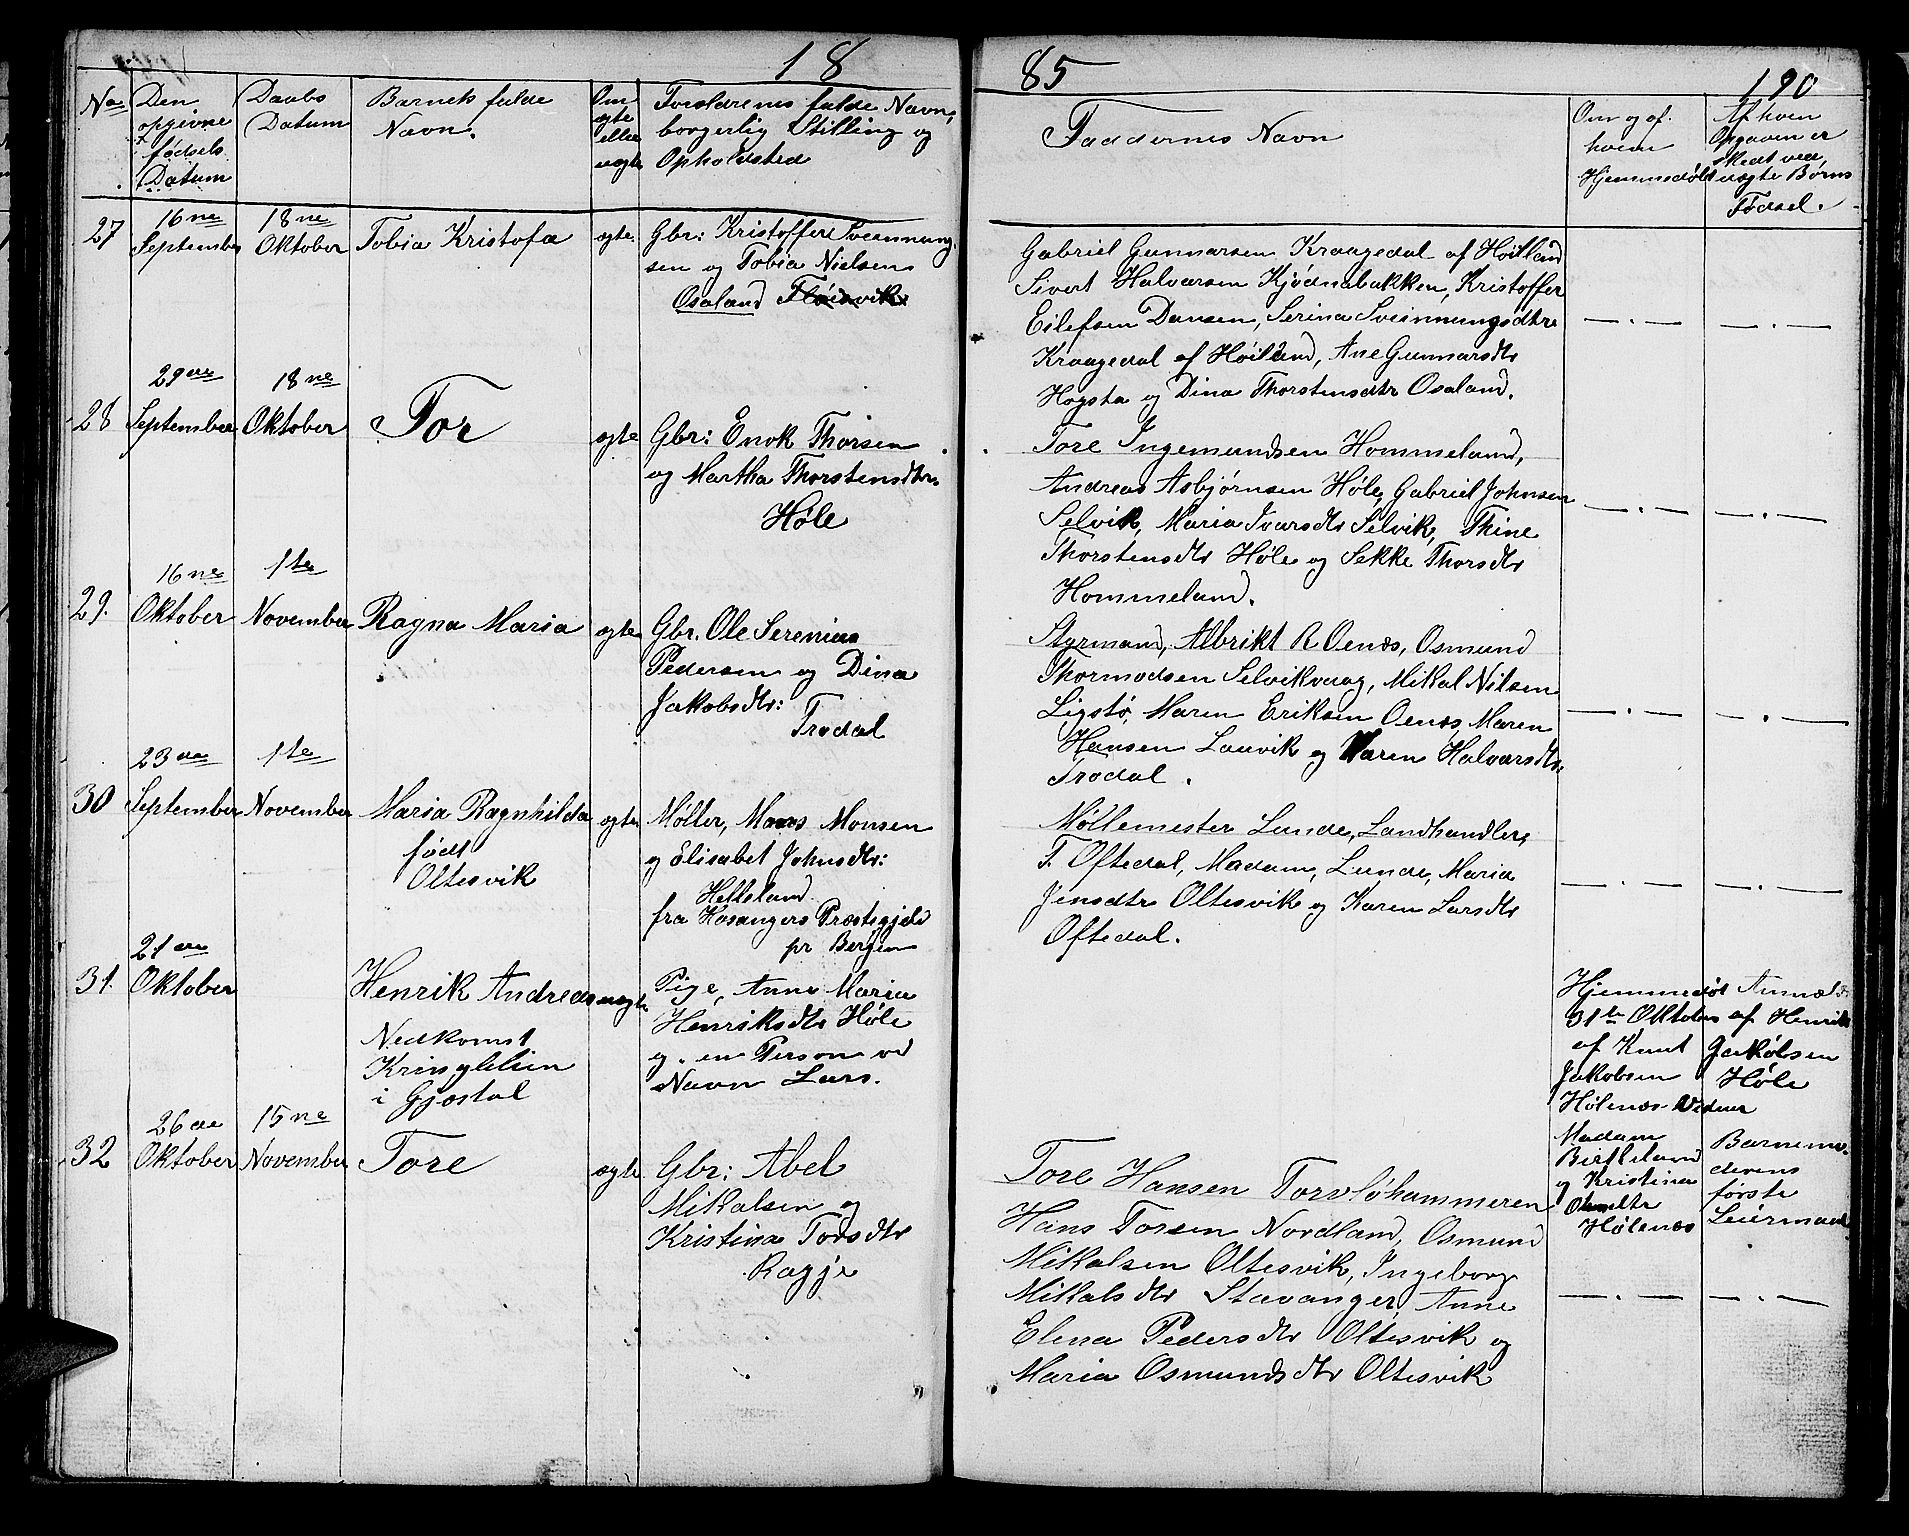 1885
190
No
Den opgivne fødsels Datum
Daabs Datum
Barnets fulde Navn.
Om ægte eller uægte
Forældrenes fulde Navn, borgerlig Stilling og Opholdsted
Faddernes Navn
Om og af hvem Hjemmedøbt
Af hvem Opgaven er skedt ved uægte Børns Fødsel.
27
16ne September
18ne Oktober
Tobia Kristofa
ægte
Gbr: Kristoffer Sveinnung-
sen og Tobia Nielsen
Osaland
Gabriel Gunnarsen Kraagedal af Høiland
Sivert Halvarsen Kjødnabakken, Kristoffer
Eilefsen Dansen, Serina Sveinnungsdtr
Kraagedal af Høiland, Ane Gunnarsdtr
Hogsta og Dina Thorstensdtr Osaland.
— . —
— . —
28
29de September
18ne Oktober
Tor
ægte
Gbr: Enok Thorsen
og Martha Thorstensdtr.
Høle
Tore Ingemundsen Hommeland,
Andreas Asbjørnsen Høle, Gabriel Johnsen
Selvik, Maria Ivarsdtr Selvik, Thine
Thorstensdtr Høle og Sekke Thorsdtr
Hommeland.
— . —
— . —
29.
16ne Oktober
1te November
Ragna Maria
ægte
Gbr. Ole Serenius
Pedersen og Dina
Jakobsdtr:
Trodal
Styrmand, Albrikt R Oenæs, Osmund
Thormodsen Selvikvaag, Mikal Nilsen
Ligstø, Maren Eriksen Oenæs, Maren
Hansen Lauvik og Karen Halvarsdtr.
Trodal.
— . —
— . —
30
23de September
1te November
Maria Ragnhilda
født
Oltesvik
ægte
Møller, Mons Monsen
og Elisabet Johnsdtr:
Helleland
fra Hosangers Præstegjeld
pr Bergen
Møllemester Lunde, Landhandler,
T. Oftedal, Madam, Lunde, Maria
Jensdtr Oltesvik og Karen Larsdtr
Oftedal.
— . —
— . —
31.
21de Oktober
Henrik Andreas
Nedkomst
Kringlelien
i Gjestal
uægte
Pige, Anne Maria
Henriksdtr Høle
og en Person ved
Navn Lars.
Hjemmedøbt
31te Oktober
af Knut
Jakobsen
Hølenæs
Madam
Birkeland
og Kristina
Hølenæs
Anmeldt
af Henrik
Jakobsen
Høle
Barnemo-
derens
første
Leiermaal
32
26de Oktober
15ne November
Tore
ægte
Gbr: Abel
Mikalsen og
Kristina Torsdtr
Ragje
Tore Hansen Torvløhammeren
Hans Torsen Nordland, Osmund
Mikalsen Oltesvik, Ingeborg
Mikalsdtr Stavanger, Anne
Elena Pedersdtr Oltesvik og
Maria Osmundsdtr Oltesvik
— . —
— . —